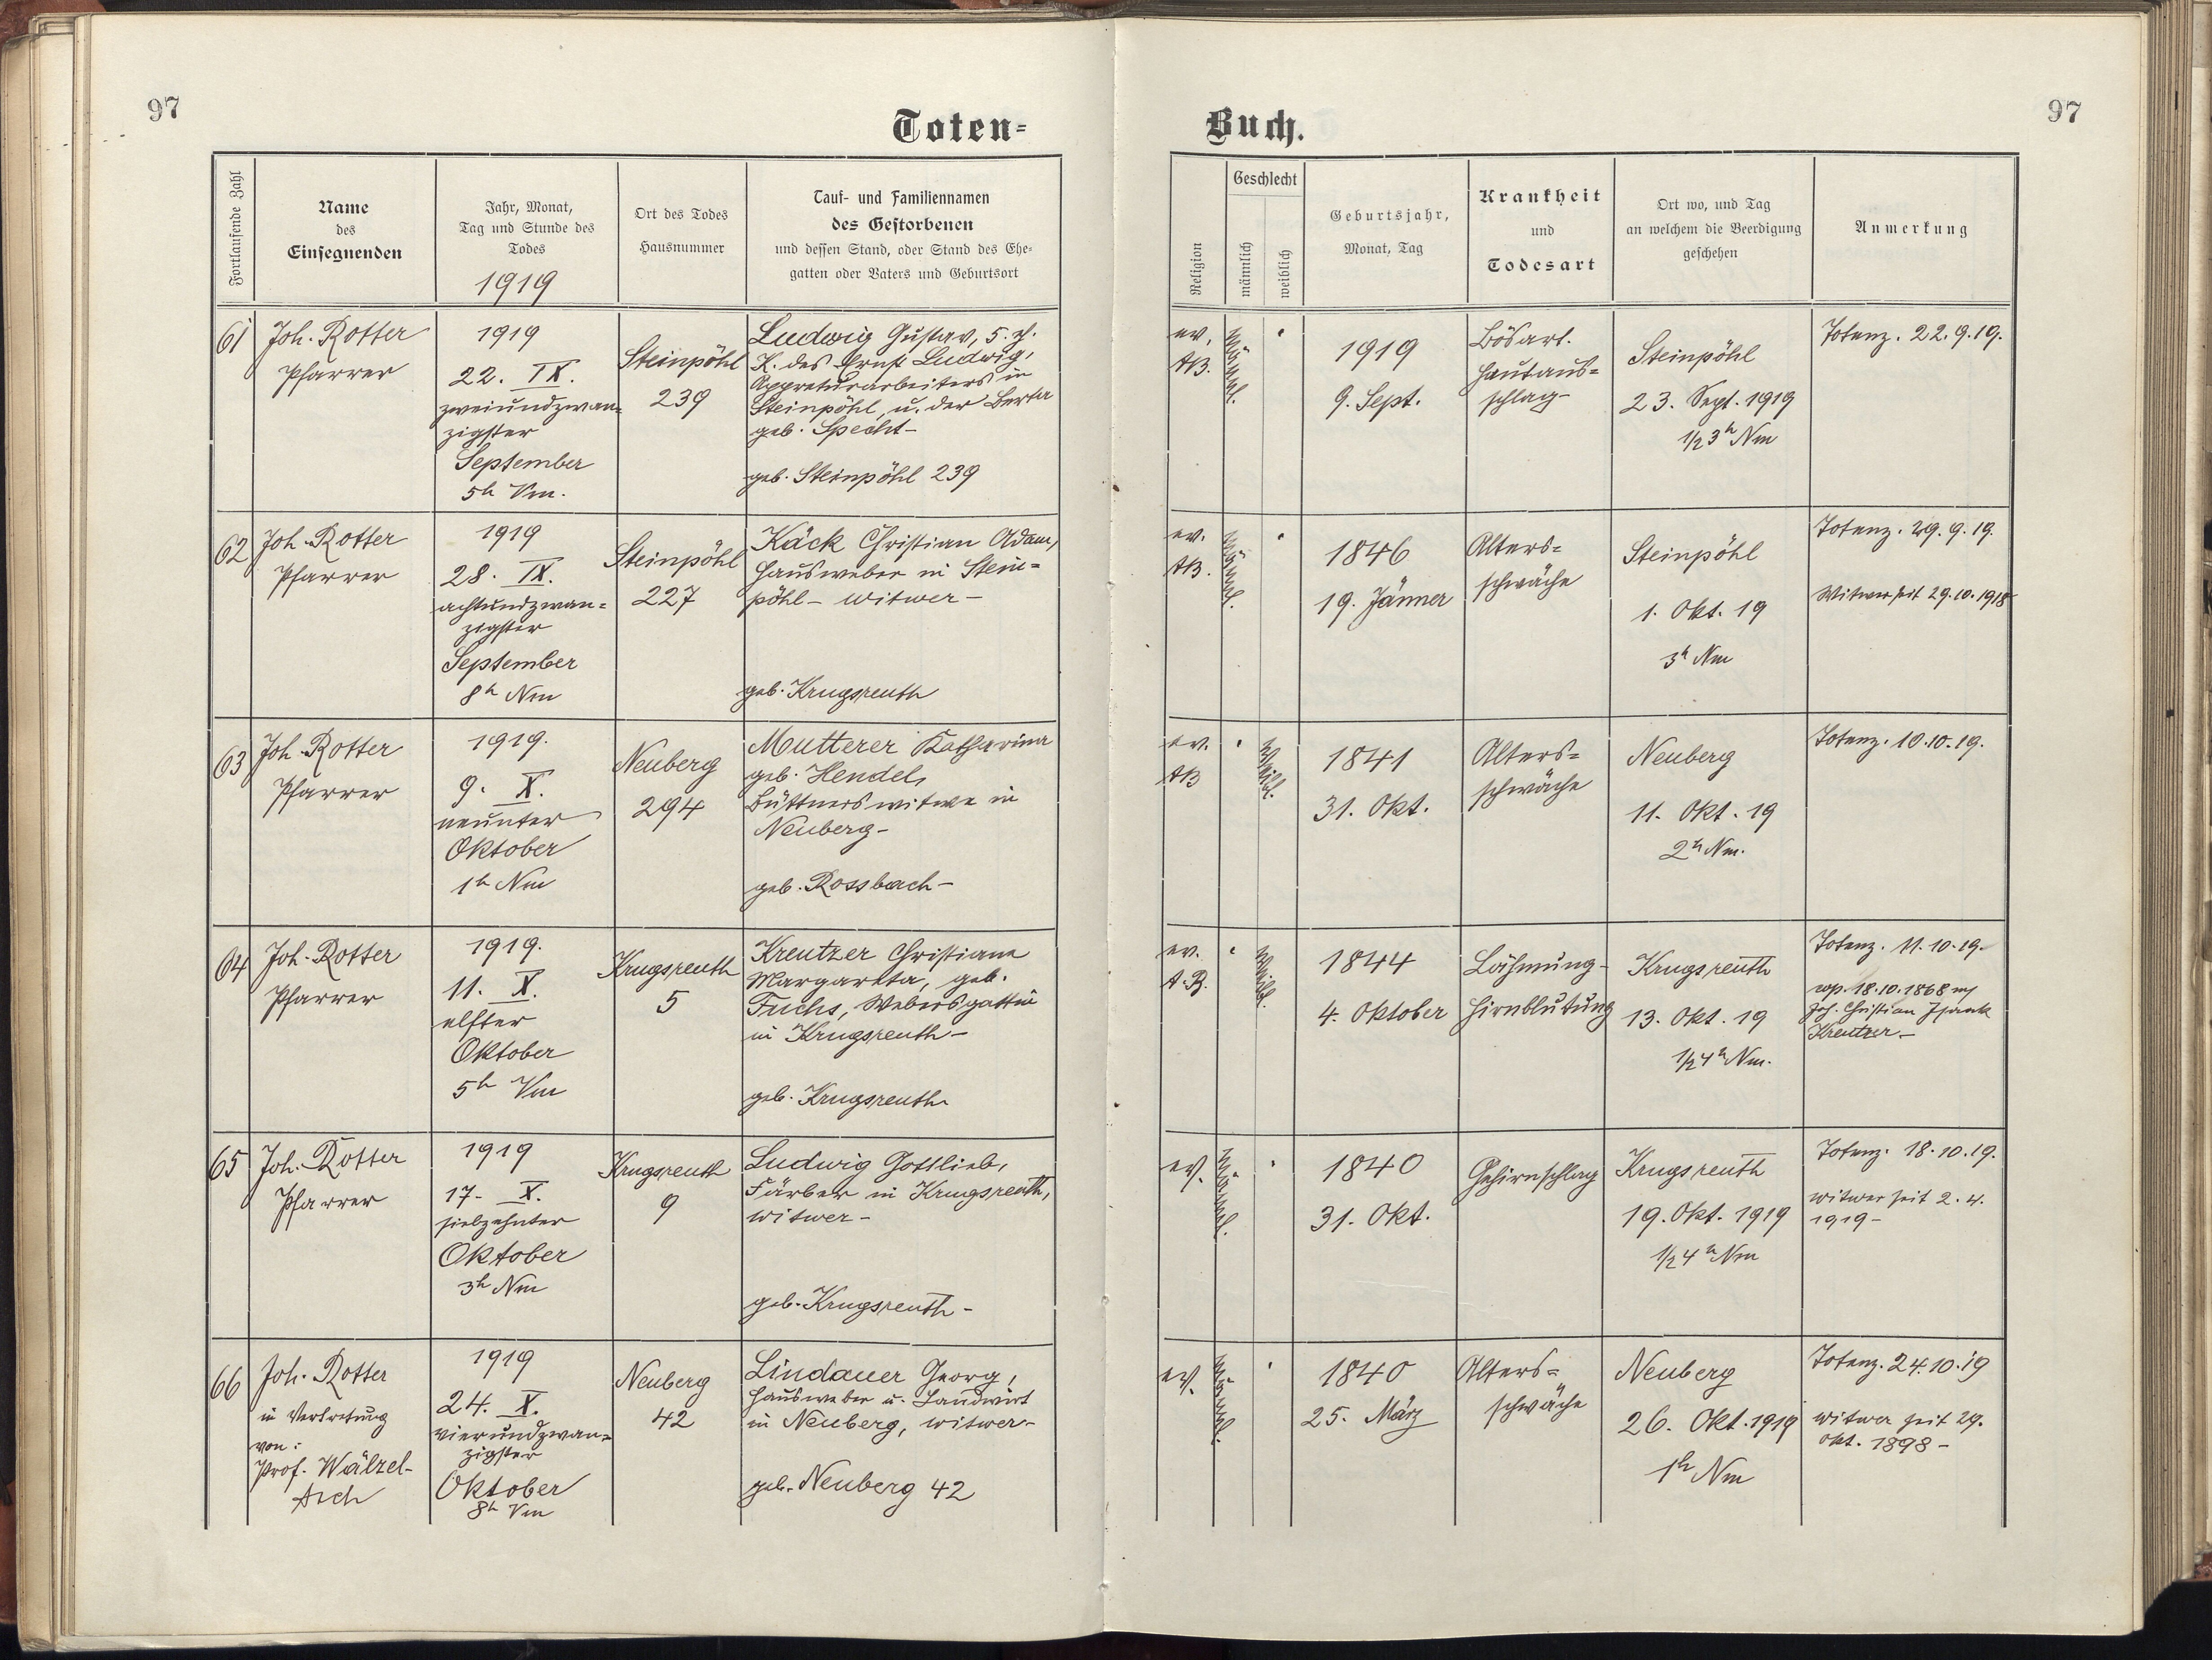 97
Toten-
Fortlaufende Zahl
Name
des
Einsegnenden
Jahr, Monat,
Tag und Stunde des
Todes
1919
Ort des Todes
Hausnummer
Tauf- und Familiennamen
des Gestorbenen
und dessen Stand, oder Stand des Ehe-
gatten oder Vaters und Geburtsort
61
Joh. Rotter
Pfarrer
1919
22. IX.
zweiundzwan-
zigster
September
5h Vm.
Steinpöhl
239
Ludwig Gustav, 5. 
K. des Ernst Ludwig,
Appreturarbeiters in
Steinpöhl, u. der Berta
geb. Specht-
geb. Steinpöhl 239
62
Joh. Rotter
Pfarrer
1919
28. IX.
achtundzwan=
zigster
September
8h Nm
Steinpöhl
227
Käck Christian Adam,
Hausweber in Stein=
pöhl - Witwer -
geb. Krugsreuth
63
Joh. Rotter
Pfarrer
1919.
9. X.
neunter
Oktober
1h Nm
Neuberg
294
Mutterer Katharina
geb. Hendel,
Büttnerswitwe in
Neuberg-
geb. Rossbach-
64
Joh. Rotter
Pfarrer
1919.
11. X.
elfter
Oktober
5h Vm
Krugsreuth
5
Kreutzer Christiane
Margareta, geb.
Fuchs, Webersgattin
in Krugsreuth-
geb. Krugsreuth
65
Joh. Rotter
Pfarrer
1919
17. X.
siebzehnter
Oktober
3h Nm
Krugsreuth
9
Ludwig Gottlieb,
Färber in Krugsreuth,
Witwer-
geb. Krugsreuth-
66
Joh. Rotter
in Vertretung
von:
Prof. Wälzel-
Asch
1919
24. X.
vierundzwan=
zigster
Oktober
8h Vm
Neuberg
42
Lindauer Georg,
Hausweber u. Landwirt
in Neuberg, Witwer-
geb. Neuberg 42
97
Buch.
Religion
Geschlecht
männlich
weiblich
Geburtsjahr,
Monat, Tag
Krankheit
und
Todesart
Ort wo, und Tag
an welchem die Beerdigung
geschehen
Anmerkung
ev.
AB.
männl.
1919
9. Sept.
Bösart.
Hautaus=
schlag-
Steinpöhl
23. Sept. 1919
1/2 3h Nm
Totenz. 22.9.19.
ev.
AB.
männl.
1846
19. Jänner
Alters=
schwäche
Steinpöhl
1. Okt. 19
3h Nm
Totenz. 29.9.19.
Witwer seit 29.10.1918
ev.
AB
weibl.
1841
31. Okt.
Alters=
schwäche
Neuberg
11. Okt. 19
2h Nm.
Totenz. 10.10.19.
ev.
A.B.
weibl.
1844
4. Oktober
Lähmung-
Hirnblutung
Krugsreuth
13. Okt. 19
1/2 4h Nm.
Totenz. 11.10.19.
cop. 18.10.1868 m
Joh. Christian
Kreutzer-
ev.
männl.
1840
31. Okt.
Gehirnschlag
Krugsreuth
19. Okt. 1919
1/2 4h Nm
Totenz. 18.10.19.
Witwer seit 2.4.
1919-
ev.
männl.
1840
25. März
Alters=
schwäche
Neuberg
26. Okt. 1919
1h Nm
Totenz. 24.10.19
Witwer seit 29.
Okt. 1898-